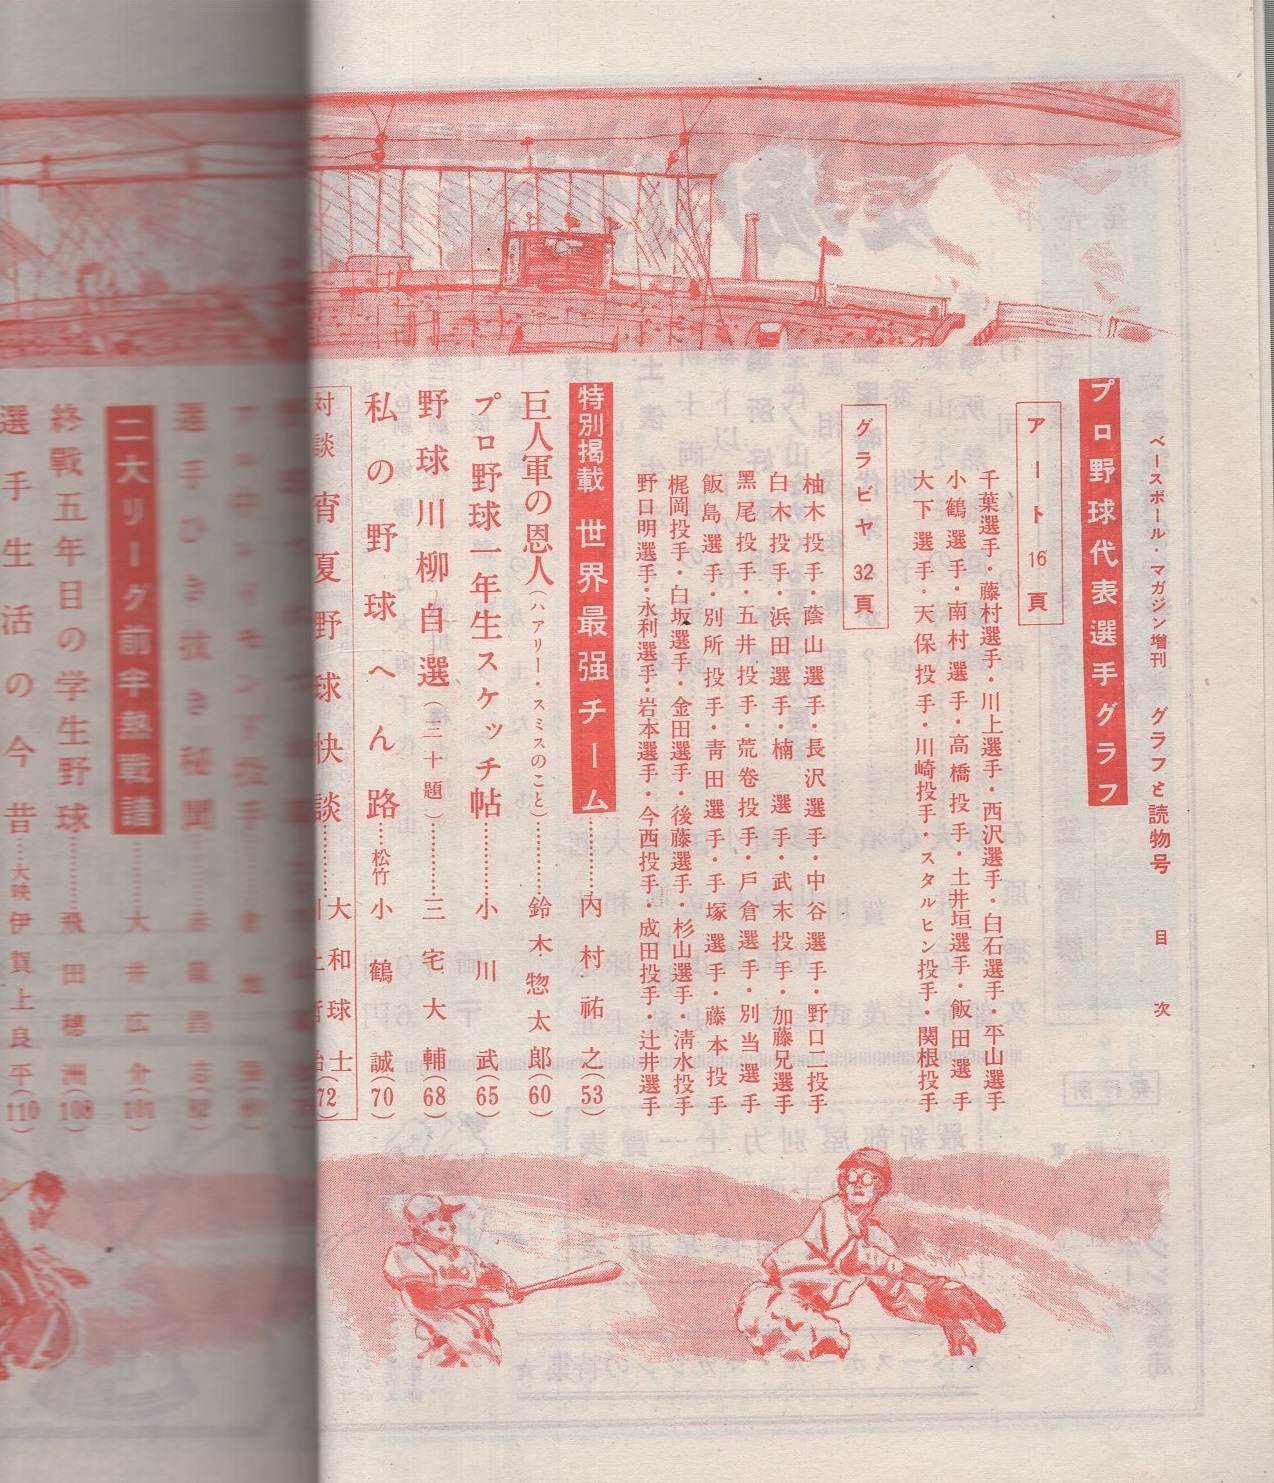 ベースボール・マガジン増刊 グラフと読物号 目次
プロ野球代表選手グラフ
アート16頁
千葉選手・藤村選手・川上選手・西沢選手・白石選手・平山選手
小鶴選手・南村選手・高橋投手・土井垣選手・飯田選手
大下選手・天保投手・川崎投手・スタルヒン投手・関根投手
グラビヤ32頁
柚木投手・蔭山選手・長沢選手・中谷選手・野口二投手
白木投手・浜田選手・楠選手・武末投手・加藤兄選手
黑尾投手・五井投手・荒巻投手・戸倉選手・別当選手
飯島選手・別所投手・青田選手・手塚選手・藤本投手
梶岡投手・白坂選手・金田選手・後藤選手・杉山選手・清水投手
野口明選手・永利選手・岩本選手・今西投手・成田投手・辻井選手
特別掲載 世界最强チーム………内村祐之(53)
巨人軍の恩人(ハアリー・スミスのこと)………鈴木惣太郎(60)
プロ野球一年生スケッチ帖………小川武(65)
野球川柳自選(三十題)………三宅大輔(68)
私の野球へん路…松竹 小鶴誠(70)
対談 宵夏野球快談………大和球士
(72)
選手ひき抜き秘聞
二大リーグ前半熱戰譜………大井広介(101)
終戰五年目の学生野球………飛田穂洲(108)
選手生活の今昔…大映 伊賀上良平(110)